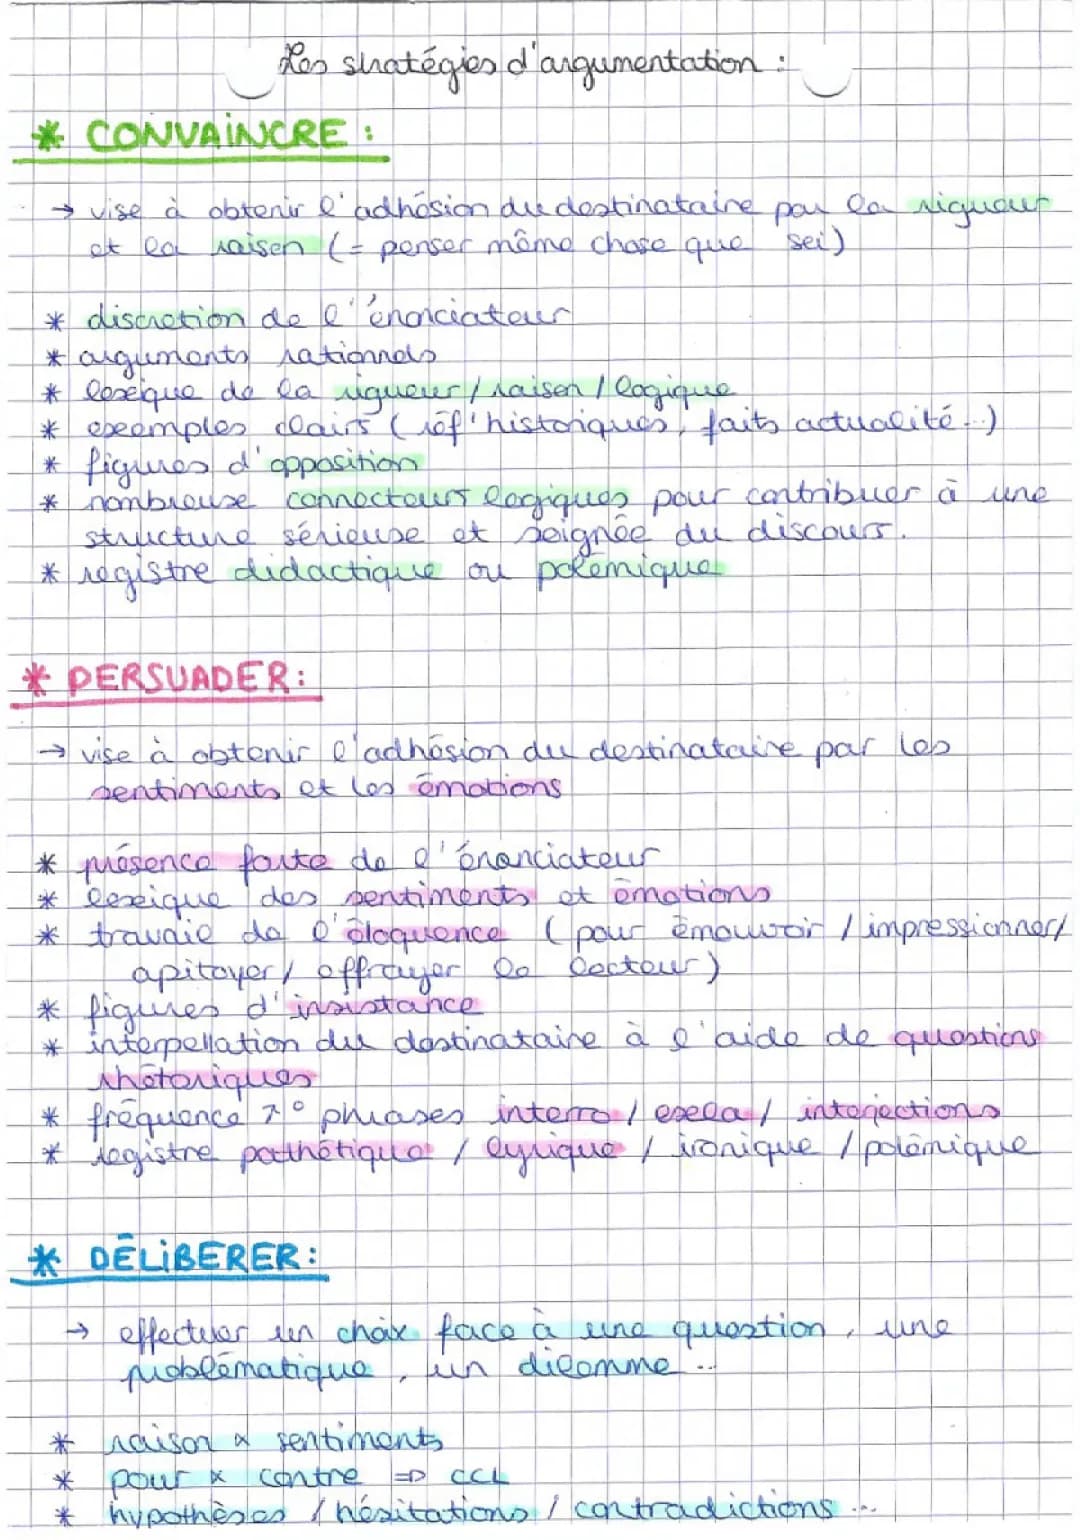 Les stratégies d'argumentation :
* CONVAINCRE :
→ vise à obtenir l'adhésion du destinataire par la rigueur
et la raison (= penser même chose que soi)
* discretion de l'énonciateur
* arguments rationnels
* lexique de la rigueur / raison / logique
* exemples clairs (réf' historiques, faits actualité...)
* figures d'opposition
* nombreuse connecteurs logiques pour contribuer à une
structure sérieuse et soignée du discours.
* registre didactique ou polémique
* PERSUADER :
→ vise à obtenir l'adhésion du destinataire par les
sentiments et les émotions
* présence forte de l'énonciateur
* lexique des sentiments et émotions
* travail de l'éloquence (pour émouvoir / impressionner /
apitoyer / effrayer le lecteur)
* figures d'insistance
* interpellation du destinataire à l'aide de questions
rhétoriques
* fréquence phrases interro / excla / interjections
* registre pathétique / lyrique / ironique / polémique
* DÉLIBERER :
→ effectuer un choix face à une question, une
problématique, un dilemme...
* raison x sentiments
* pour x contre => CCL
* hypothèses / hésitations / contradictions ...